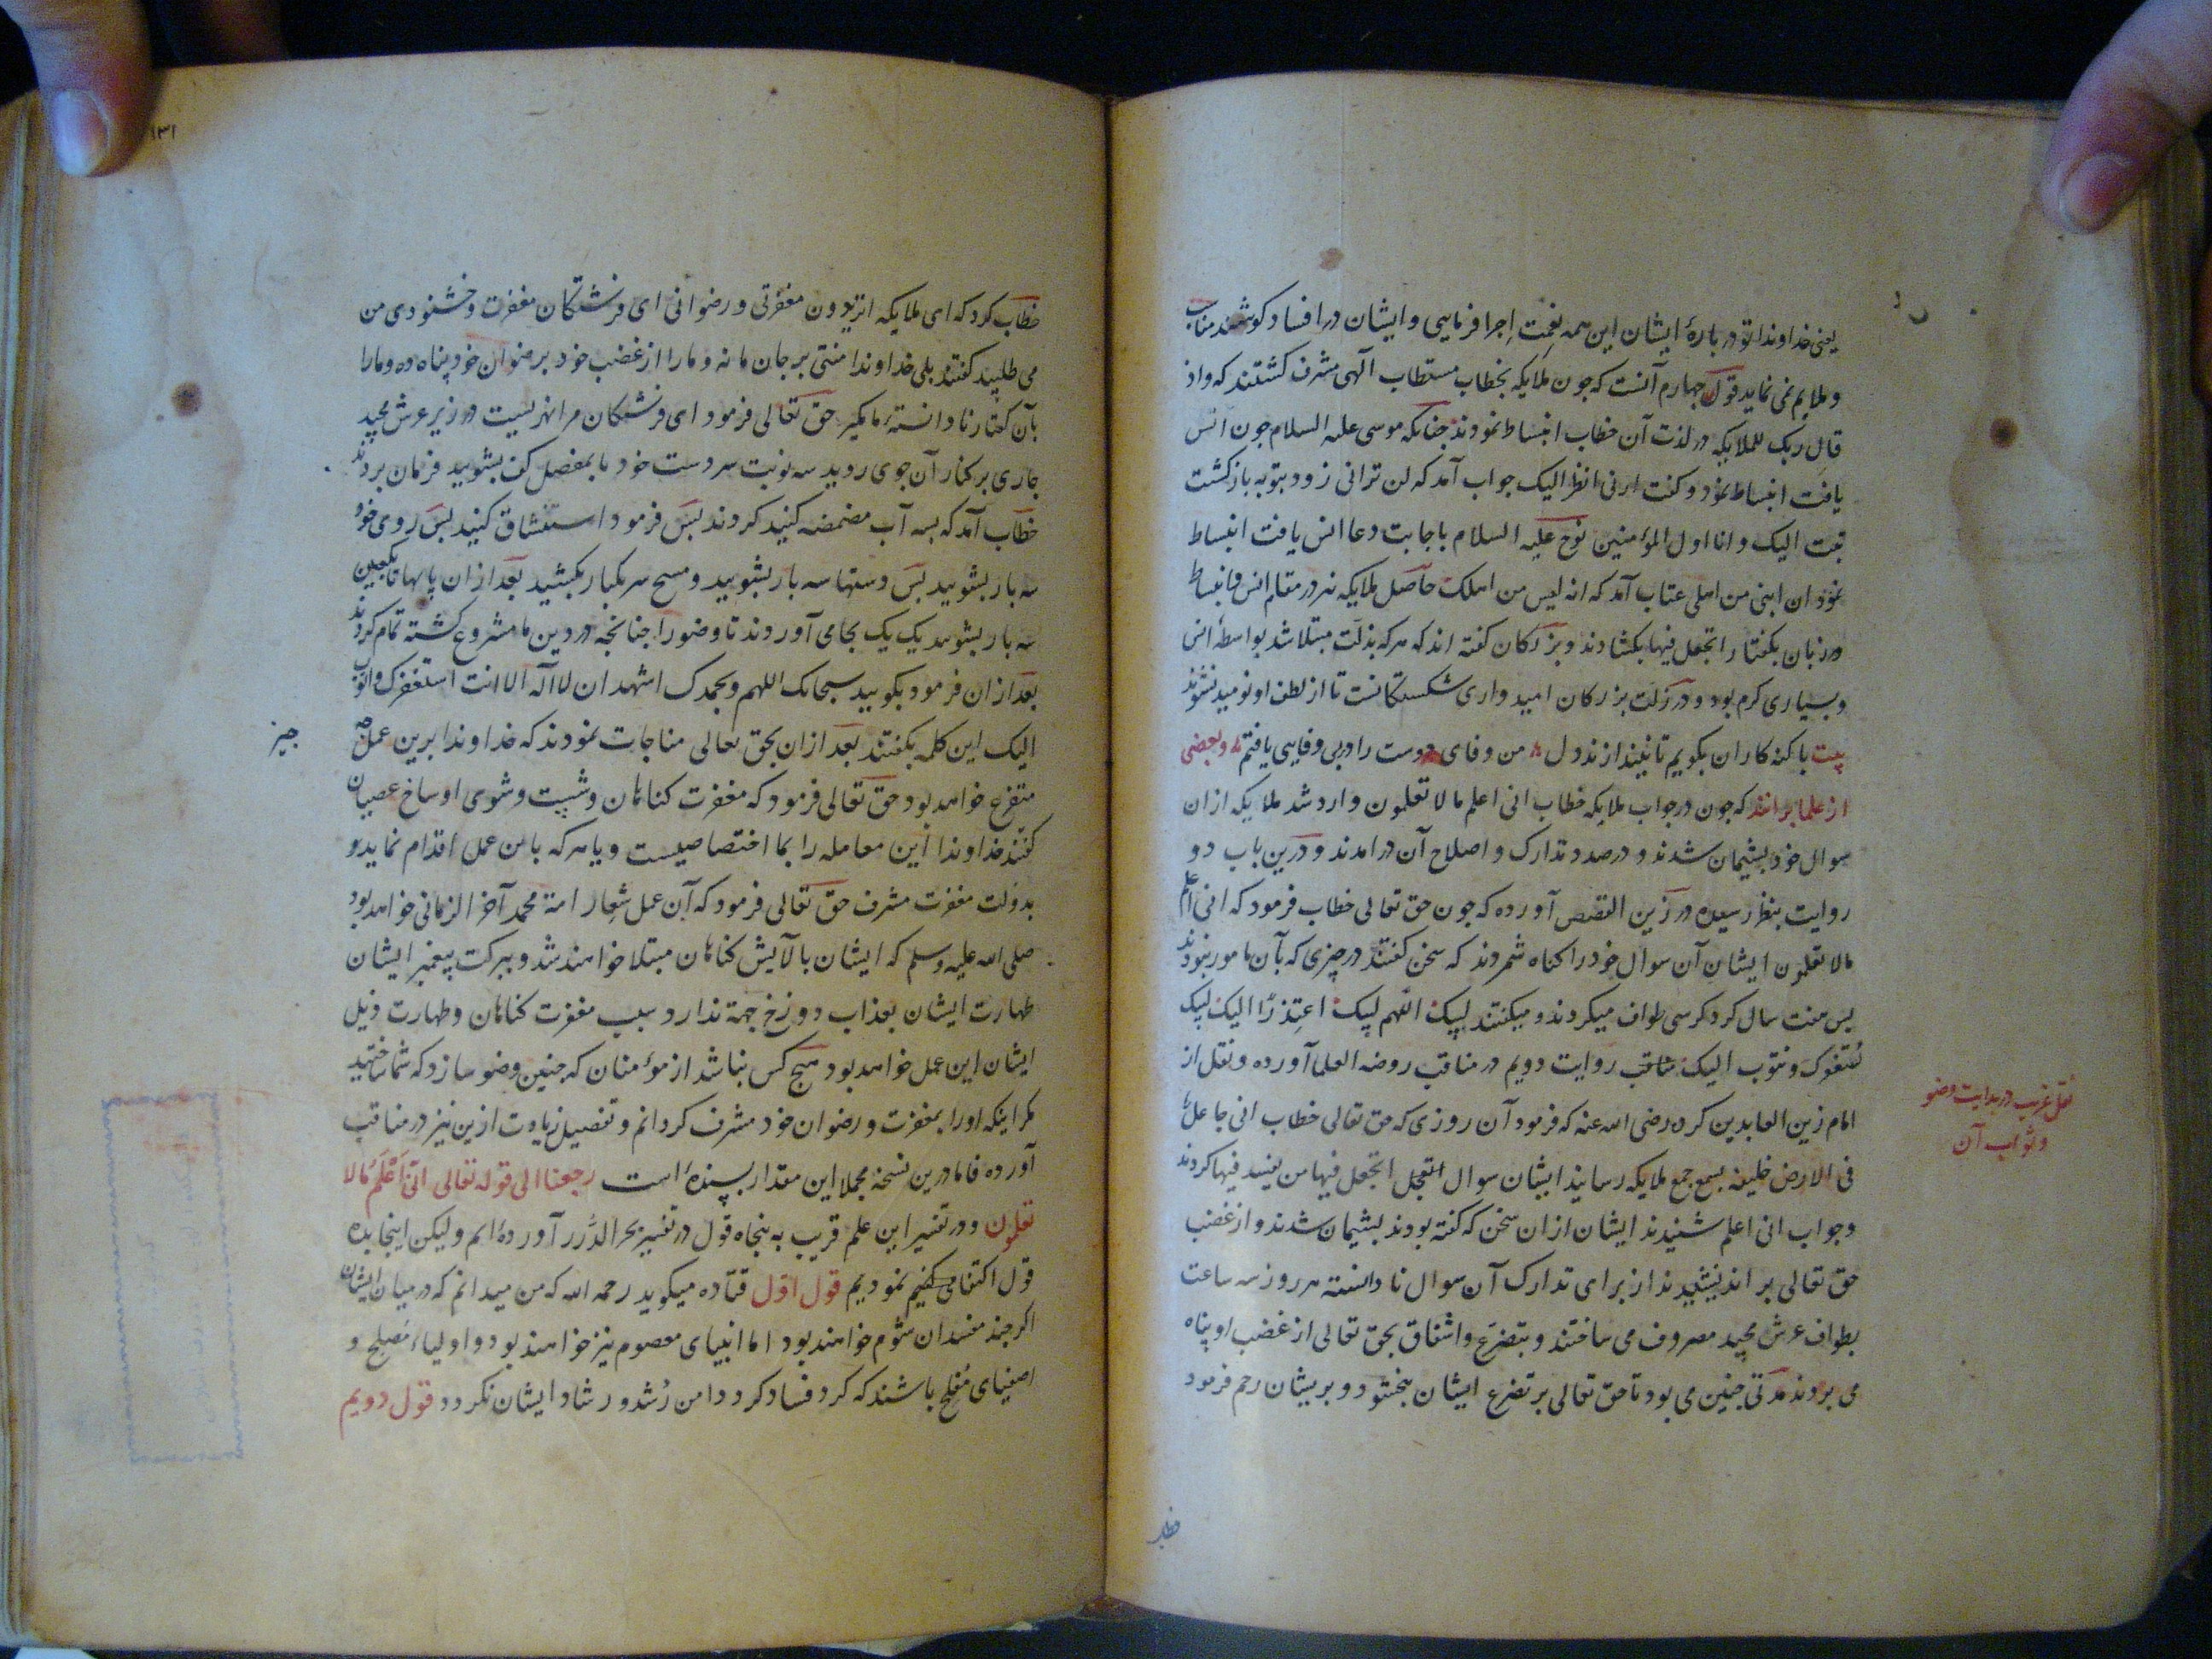 یعنی خداوندا تو در بارهٔ ایشان این همه نعمت اجرا فرمایی و ایشان در افساد کوشند مناسب
و ملایم نمی نماید قول چهارم آنست که جون ملایکه بخطاب مستطاب الهی مشرف کشتند که واذ
قال ربک للملایکه در لذت آن خطاب انبساط نمودند جنانکه موسی علیه السلام جون انس
یافت انبساط نمود و کفت ارنی انظر الیک جواب آمد که لن ترانی زود بتوبه باز کشت
تبت الیک و انا اول المؤمنین نوح علیه السلام باجابت دعا انس یافت انبساط
نمود ان ابنی من اهلی عتاب آمد که انه لیس من اهلک حاصل ملایکه نیز در مقام انس و انبساط
در زبان بکفتار اتجعل فیها بکشادند و بزرکان کفته اند که هر که بذلت مبتلا شد بواسطهٔ انس
و بسیاری کرم بود و در زلت بزرکان امیدواری شکستکانست تا از لطف او نومید نشوند
بیت با کنه کاران بکویم تا نیندازند دل من وفای دوست را در بی وفایی یافتم و بعضی
از علما برانند که جون در جواب ملایکه خطاب انی اعلم ما لا تعلمون وارد شد ملایکه از ان
سوال خود بشیمان شدند و در صدد تدارک و اصلاح آن درامدند و درین باب دو
روایت بنظر رسیده در زین القصص آورده که جون حق تعالی خطاب فرمود که انی اعلم
مالا تعلمون ایشان آن سوال خود را کناه شمردند که سخن کفتند در چیزی که بآن مامور نبودند
بس هفت سال کرد کرسی طواف میکردند و میکفتند لبیک اللهم لبیک اعتذرًا الیک لبیک
نستغفرک و نتوب الیک مناقب روایت دویم در مناقب روضه العلما آورده و نقل از
امام زین العابدین کرده رضی الله عنه که فرمود آن روزی که حق تعالی خطاب انی جاعل
فی الارض خلیفه بسمع جمع ملایکه رسانید ایشان سوال اتجعل اتجعل فیها من یفسد فیها کردند
و جواب انی اعلم شنیدند ایشان از ان سخن که کفته بودند بشیمان شدند و از غضب
حق تعالی بر اندیشیدند از برای تدارک آن سوال نادانسته هر روز سه ساعت
بطواف عرش مجید مصروف می ساختند و بتضرع و اشفاق بحق تعالی از غضب او پناه
می بردند مدتی جنین می بود تا حق تعالی بر تضرع ایشان ببخشود و بریشان رحم فرمود
نقل غریب در بدایت وضو
و ثواب آن
خطاب
۱۳۱
خطاب کرد که ای ملایکه اتریدون مغفرتی و رضوانی ای فرشتکان مغفرت و خشنودی من
می طلبید کفتند بلی خداوندا منتی بر جان ما نه و ما را از غضب خود برضوان خود پناه ده و ما را
بآن کفتار نادانستهٔ ما مکیر حق تعالی فرمود ای فرشتکان مرا نهریست در زیر عرش مجید
جاری بر کنار آن جوی روید سه نوبت سر دست خود تا بمفصل کف بشویید فرمان بردند
خطاب آمد که بسه آب مضمضه کنید کردند بس فرمود استنشاق کنید بس روی خود
سه بار بشویید بس دستها سه بار بشویید و مسح سر یکبار بکشید بعد از ان پایها تا کعبین
سه بار بشویید یک یک بجا می آوردند تا وضو را جنانجه در دین ما مشروع کشته تمام کردند
بعد از ان فرمود بکویید سبحانک اللهم و بحمدک اشهد ان لا اله الا انت استغفرک و اتوب
الیک این کلمه بکفتند بعد از ان بحق تعالی مناجات نمودند که خداوندا برین عمل چه
چیز
متفرع خواهد بود حق تعالی فرمود که مغفرت کناهان و شست و شوی اوساخ عصیان
کنند خداوندا این معامله را بما اختصاصیست و یا هر که باین عمل اقدام نماید و
بدولت مغفرت مشرف حق تعالی فرمود که آن عمل شعار امت محمد آخر الزمانی خواهد بود
صلی الله علیه وسلم که ایشان بآلایش کناهان مبتلا خواهند شد و ببرکت پیغمبر ایشان
طهارت ایشان بعذاب دوزخ جهة ندارد سبب مغفرت کناهان و طهارت ذیل
ایشان این عمل خواهد بود هیچ کس نباشد از مؤمنان که جنین وضو سازد که شما ساختید
مکر اینکه او را بمغفرت و رضوان خود مشرف کردانم و تفصیل زیادت ازین نیز در مناقب
آورده فاما درین نسخه مجملا این مقدار بسنده است رجعنا الی قوله تعالی انّی اَعْلَمُ مالا
تعلمون و در تفسیر این علم قریب به پنجاه قول در تفسیر بحر الدُّرر آورده ایم و لیکن اینجا بده
قول اکتفا می کنیم نمودیم قول اوّل قتاده میکوید رحمه الله که من میدانم که در میان ایشان
اکر جند مفسدان شوم خواهند بود اما انبیای معصوم نیز خواهند بود و اولیاء مُصلح و
اصفیای مُفلح باشند که کرد فساد کرد دامن رُشد و رشاد ایشان نکردد قول دویم